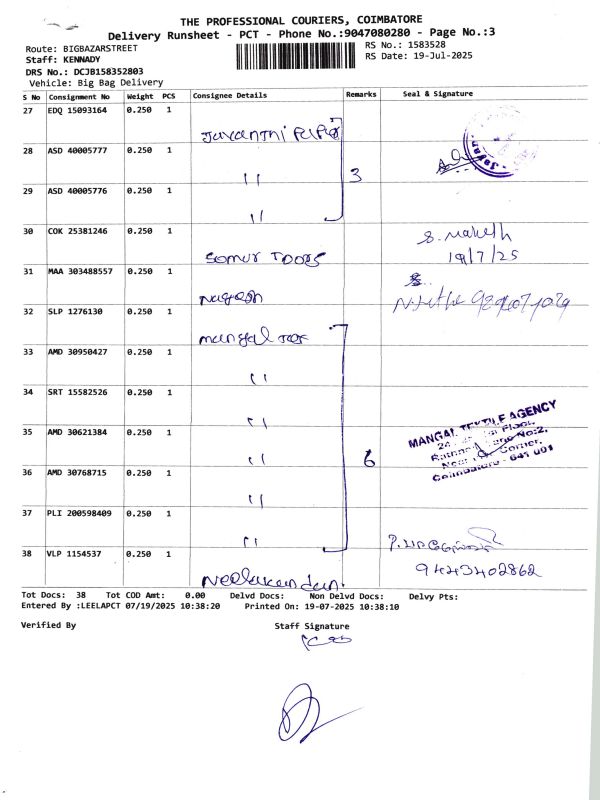 THE PROFESSIONAL COURIERS, COIMBATORE
Delivery Runsheet - PCT - Phone No.:9047080280 - Page No.:3
Route: BIGBAZARSTREET
RS No.: 1583528
Staff: KENNADY
RS Date: 19-Jul-2025
DRS No.: DCJB158352803
Vehicle: Big Bag Delivery
S No Consignment No Weight PCS Consignee Details Remarks Seal & Signature
27 EDQ 15093164 0.250 1
Jayanthi
28 ASD 40005777 0.250 1
" 3
29 ASD 40005776 0.250 1
"
30 COK 25381246 0.250 1
S. Mahesh
19/7/25
31 MAA 303488557 0.250 1
32 SLP 1276130 0.250 1
mangal
33 AMD 30950427 0.250 1
"
34 SRT 15582526 0.250 1
"
35 AMD 30621384 0.250 1
" 6
MANGAL TEXTILE AGENCY
Coimbatore - 641 001
36 AMD 30768715 0.250 1
"
37 PLI 200598409 0.250 1
"
38 VLP 1154537 0.250 1
9443402862
Neelakandan.
Tot Docs: 38 Tot COD Amt: 0.00 Delvd Docs: Non Delvd Docs: Delvy Pts:
Entered By :LEELAPCT 07/19/2025 10:38:20 Printed On: 19-07-2025 10:38:10
Verified By Staff Signature